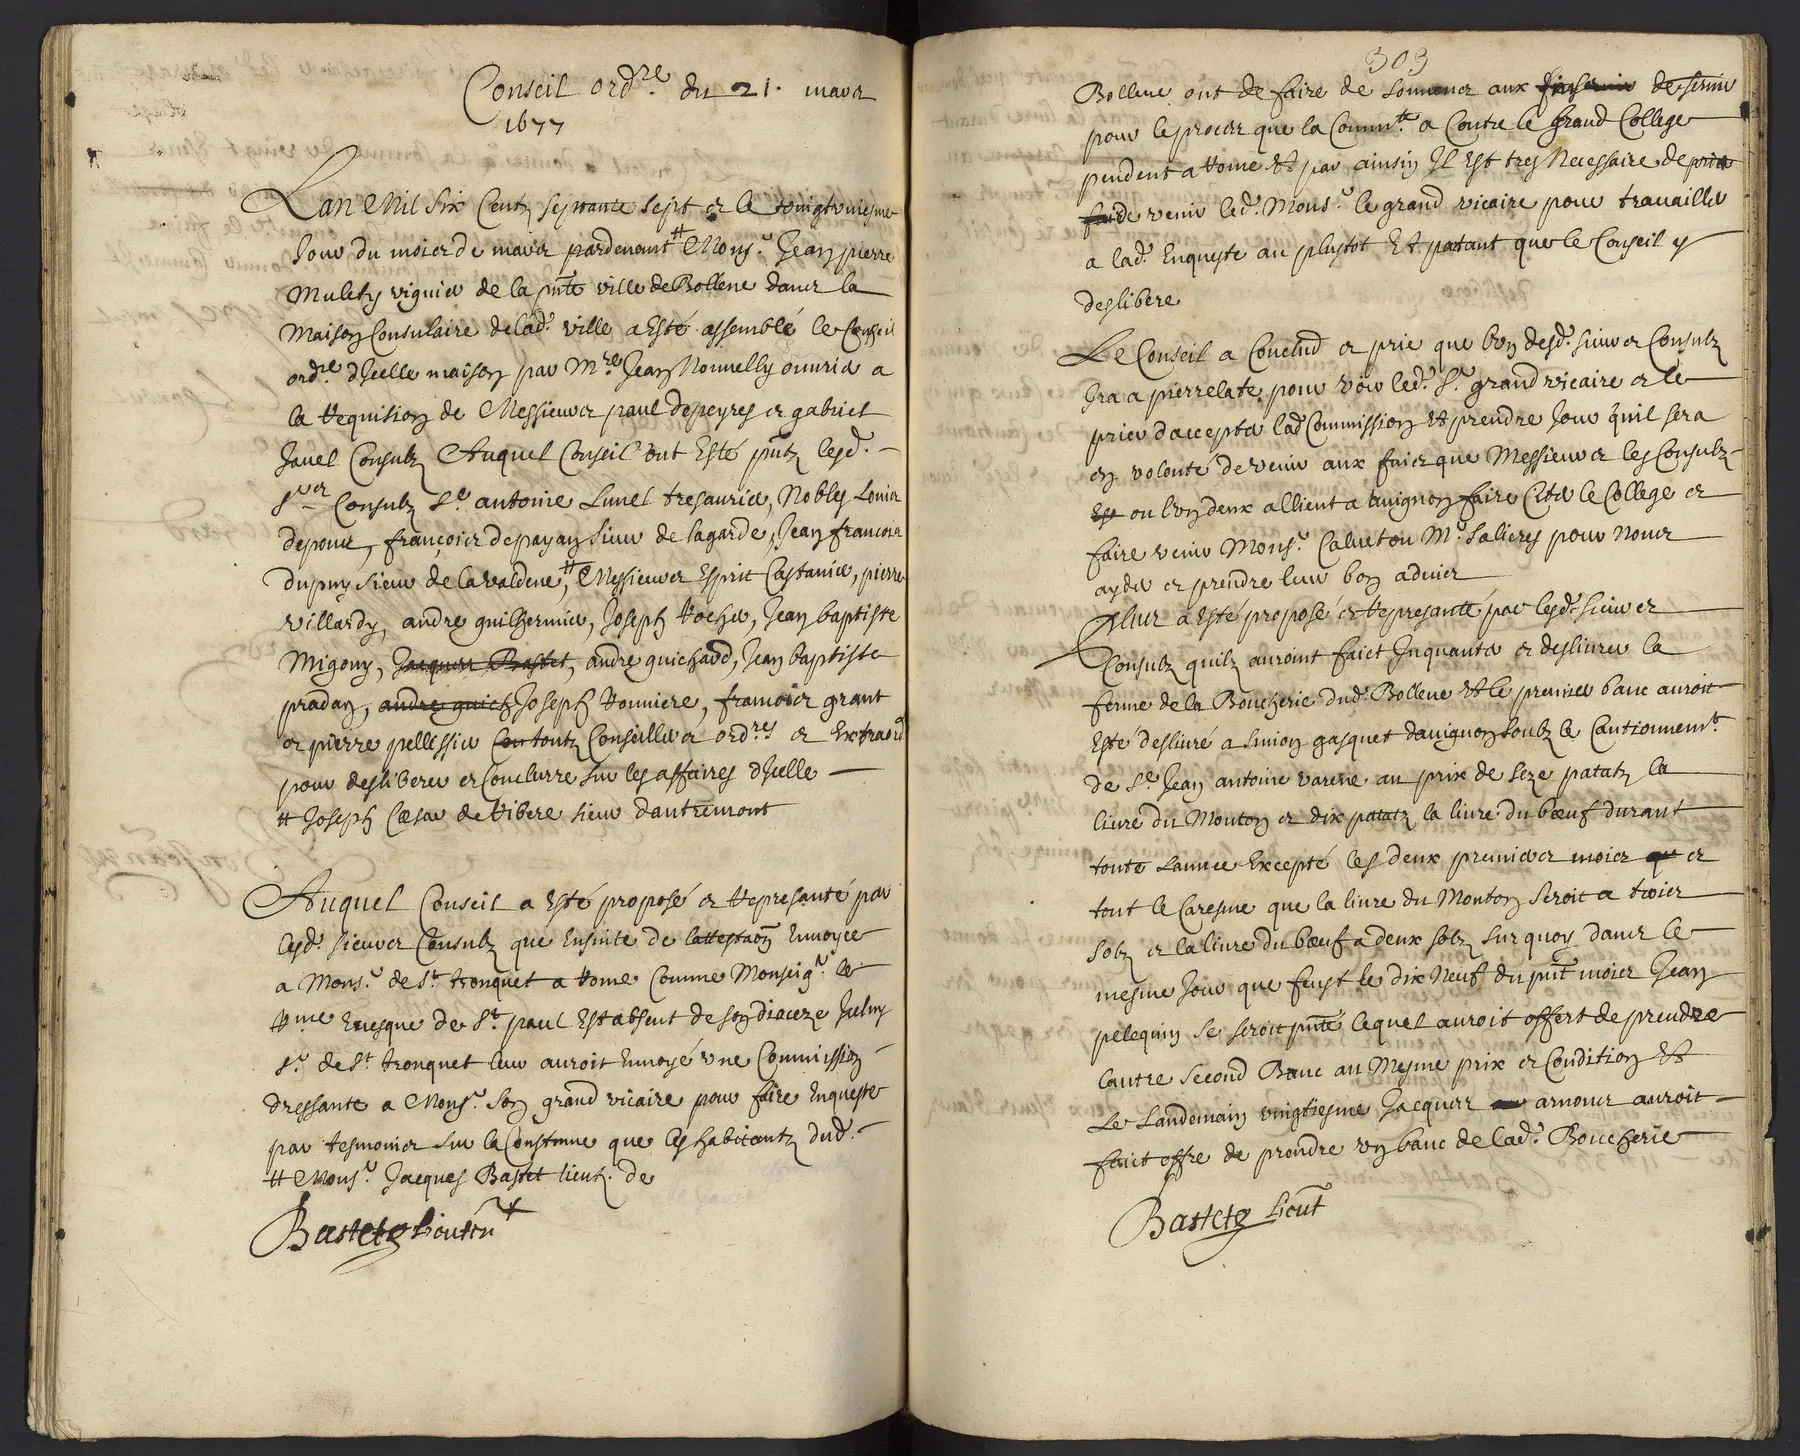 Conseil ord.re du 21. mars
1677
Lan Mil Six Centz septante sept et le vingtuniesme
Jour du mois de mars pardevant # Mons.r Jean pierre
Mulety viguier de la pnte ville de Bollene dans la
Maison Consulaire de lad. ville a Esté assemblé le Conseil
ord.re dIcelle maison par M.re Jean Nonnelly ouvrier a
la Requision de Messieurs paul depeyres et gabriel
Javel Consulz Auquel Conseil ont Esté pntz lesd.
S.rs Consulz S.r antoine Lunel tresaurier, Nobles Louis
depons, françois depayan sieur de lagarde, Jean francois
dupuy sieur de lavaldene, # Messieurs Esprit Castanier, pierre
villardy, andre guilhermier, Joseph Rocher, Jean baptiste
Migony, Jacques Bastet, andre guichard, Jean baptiste
pradan, andre guich Joseph Ronniere, francois grant
et pierre pellissier Con toutz Conseilliers ord.res et Extraord
pour desliberer et Conclurre sur les affaires dIcelle
# Joseph Cæsar de Ribere sieur dautremont
Auquel Conseil a Esté proposé et Represanté par
lesd. sieurs Consulz que Ensuite de lattestaon Envoyee
a Mons.r de S.t tronquet a Rome Comme Monseig.r le
R.me Evesque de S.t paul Est absent de son dioceze Icelluy
S.r de S.t tronquet leur auroit Envoyé vne Commission
dressante a Mons.r son grand vicaire pour faire Enqueste
par tesmoins sur la Coustume que les habitantz dud.
# Mons.r Jacques Bastet lieut. de
Bastete Lieuten
303
Bollene ont de faire de sommer aux de
pour le proces que la Comm.té a Contre le grand College
pendent a Rome Et par ainsin Il Est tres Necessaire de
de venir led. Mons.r le grand vicaire pour travailler
a lad. Enqueste au plustot Et patant que le Conseil y
deslibere
Le Conseil a Conclud et prie que lvn desd. sieurs Consulz
Ira a pierrelate pour voir led. S.r grand vicaire et le
prier dacepter lad Commission Et prendre Jour quil sera
en volonté de venir aux fins que Messieurs les Consulz
ou lvn deux allient a avignon faire Citer le College et
faire venir Mons.r Calvet ou M.r Salieres pour Nous
ayder et prendre leur bon advis
Plus a Esté proposé et Represanté par lesd. sieurs
Consulz quilz auroint faict Inquanter et deslivrer la
ferme de la Boucherie dud. Bollene Et le premier banc auroit
Esté deslivré a simon gasquet davignon soubz le Cautionnem.t
de S.r Jean antoine varene au prix de seze patatz la
livre du Mouton et dix patatz la livre du bœuf durant
toute Lannee Excepté les deux premiers mois que et
tout le Caresme que la livre du Mouton seroit a trois
solz et la livre du bœuf a deux solz sur quoy dans le
mesme Jour que fust le dix Neuf du pnt mois Jean
pelequin se seroit pnté lequel auroit offert de prendre
lautre second Banc au Mesme prix et Condition Et
Le Landemain vingtiesme Jacques arnoux auroit
faict offre de prendre vn banc de lad. Boucherie
Bastete Lieut